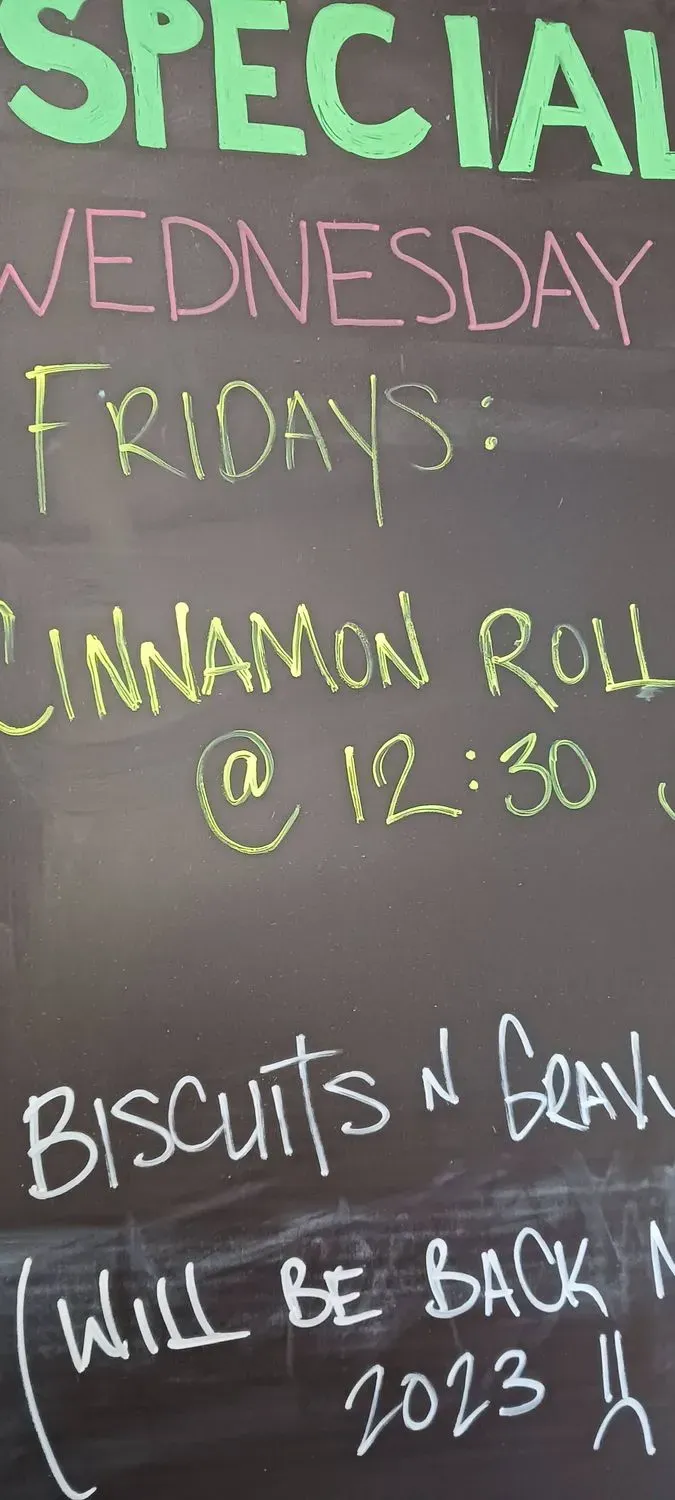 SPECIAL
WEDNESDAY
FRIDAYS:
CINNAMON ROLL
@ 12:30
BISCUITS N GRAVY
(WILL BE BACK
2023